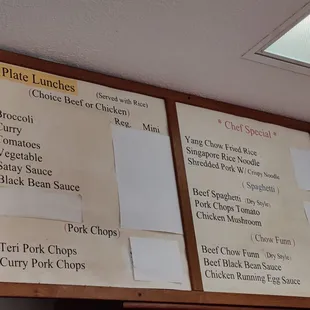 Plate Lunches
(Served with Rice)
(Choice Beef or Chicken)
Reg Mini
Broccoli
Curry
Tomatoes
Vegetable
Satay Sauce
Black Bean Sauce
(Pork Chops)
Teri Pork Chops
Curry Pork Chops
* Chef Special *
Yang Chow Fried Rice
Singapore Rice Noodle
Shredded Pork W/ Crispy Noodle
(Spaghetti)
Beef Spaghetti (Dry Style)
Pork Chops Tomato
Chicken Mushroom
(Chow Funn)
Beef Chow Funn (Dry Style)
Beef Black Bean Sauce
Chicken Running Egg Sauce